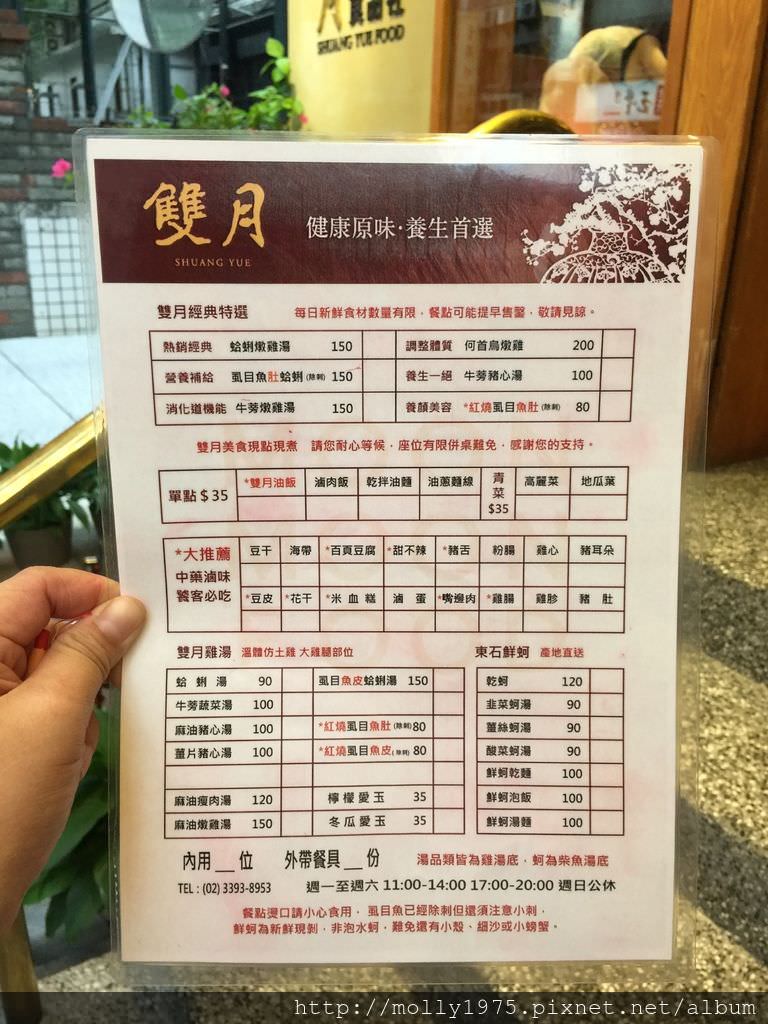 SHUANG YUE FOOD
雙月
SHUANG YUE
健康原味·養生首選
雙月經典特選 每日新鮮食材數量有限,餐點可能提早售罄,敬請見諒。
熱銷經典 蛤蜊燉雞湯 150 調整體質 何首烏燉雞 200
營養補給 虱目魚肚蛤蜊(除刺) 150 養生一絕 牛蒡豬心湯 100
消化道機能 牛蒡燉雞湯 150 養顏美容 *紅燒虱目魚肚(除刺) 80
雙月美食現點現煮 請您耐心等候,座位有限併桌難免,感謝您的支持。
單點$35 *雙月油飯 滷肉飯 乾拌油麵 油蔥麵線 青菜$35 高麗菜 地瓜葉
*大推薦 豆干 海帶 *百頁豆腐 *甜不辣 *豬舌 粉腸 雞心 豬耳朵
中藥滷味
饕客必吃 *豆皮 *花干 *米血糕 滷蛋 *嘴邊肉 *雞腸 雞胗 豬肚
雙月雞湯 溫體仿土雞 大雞腿部位 東石鮮蚵 產地直送
蛤蜊湯 90 虱目魚皮蛤蜊湯 150 乾蚵 120
牛蒡蔬菜湯 100 韭菜蚵湯 90
麻油豬心湯 100 *紅燒虱目魚肚(除刺)80 薑絲蚵湯 90
薑片豬心湯 100 *紅燒虱目魚皮(除刺)80 酸菜蚵湯 90
鮮蚵乾麵 100
麻油瘦肉湯 120 檸檬愛玉 35 鮮蚵泡飯 100
麻油燉雞湯 150 冬瓜愛玉 35 鮮蚵湯麵 100
內用__位 外帶餐具__份 湯品類皆為雞湯底,蚵為柴魚湯底
TEL:(02) 3393-8953 週一至週六 11:00-14:00 17:00-20:00 週日公休
餐點燙口請小心食用,虱目魚已經除刺但還須注意小刺,
鮮蚵為新鮮現剝,非泡水蚵,難免還有小殼、細沙或小螃蟹。
http://molly1975.pixnet.net/album